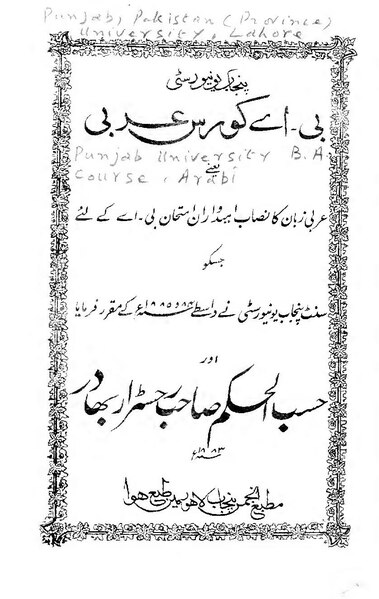 Punjab, Pakistan (Province)
University, Lahore
پنجاب یونیورسٹی
بی-اے کورس عربی
Punjab University B.A.
یعنے
Course, Arabi
عربی زبان کا نصاب امیدواران امتحان بی-اے کے لئے
جسکو
سنٹ پنجاب یونیورسٹی نے واسطے ۸۴ و ۱۸۸۵ء کے مقرر فرمایا
اور
حسب الحکم صاحب رجسٹرار بہادر
۱۸۸۳ء
مطبع انجمن پنجاب لاہور میں طبع ہوا